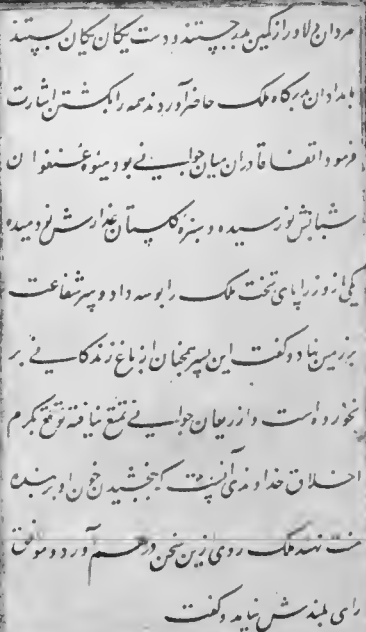 مردان دلاور از کمین بدر جستند و دست یکان یکان ببستند
بامدادان بدرگاه ملک حاضر آوردند همه را بکشتن اشارت
فرمود اتفاقا دران میان جوانی بود میوه عنفوان
شبابش نورسیده و سبزه گلستان عذارش نودمیده
یکی از وزرا پای تخت ملک را بوسه داد و سر شفاعت
بر زمین نهاد و گفت این پسر همچنان از باغ زندگانی بر
نخورده است و از ریعان جوانی تمتع نیافته توقع بکرم
اخلاق خداوندی آنست که ببخشیدن خون او بر بنده
منت نهد ملک روی ازین سخن درهم آورد و موافق
رای بلندش نیامد و گفت